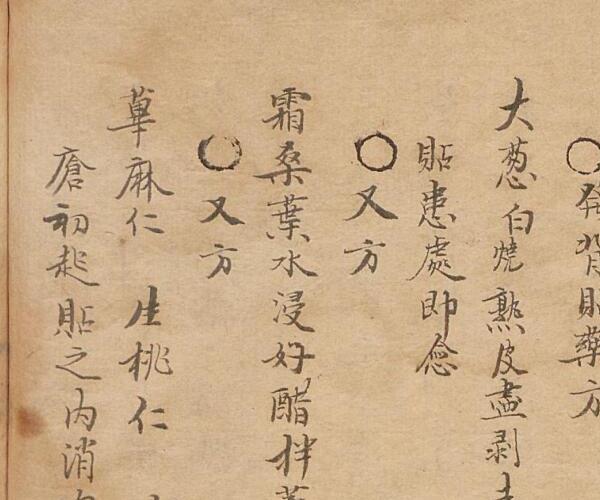 ○發背貼藥方
大葱白燒熟皮盡剥
貼患處即愈
○又方
霜桑葉水浸好醋拌
○又方
萆麻仁 生桃仁
瘡初起貼之内消